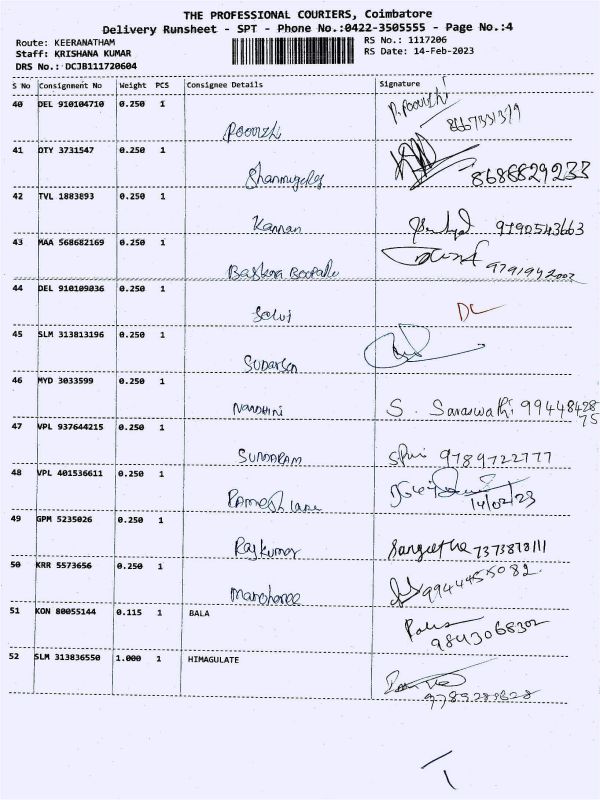 THE PROFESSIONAL COURIERS, Coimbatore
Delivery Runsheet - SPT - Phone No.:0422-3505555 - Page No.:4
Route: KEERANATHAM RS No.: 1117206
Staff: KRISHANA KUMAR RS Date: 14-Feb-2023
DRS No.: DCJB111720604
S No Consignment No Weight PCS Consignee Details Signature
40 DEL 910104710 0.250 1
Poovizhi P. Poovizhi 8667331379
41 DTY 3731547 0.250 1
8686829233
42 TVL 1883893 0.250 1
Kannan 9790543663
43 MAA 568682169 0.250 1
Baskera Boopalu 9791942002
44 DEL 910109036 0.250 1
Selvi DC
45 SLM 313813196 0.250 1
SUDARSON
46 MYD 3033599 0.250 1
NANDHINI S. Saraswathi 9944842875
47 VPL 937644215 0.250 1
SUNDARAM 9789722777
48 VPL 401536611 0.250 1
14/02/23
49 GPM 5235026 0.250 1
Rajkumar Sangeetha 7373878111
50 KRR 5573656 0.250 1
9944455082
51 KON 80055144 0.115 1 BALA
9843068302
52 SLM 313836550 1.000 1 HIMAGULATE
9789289628